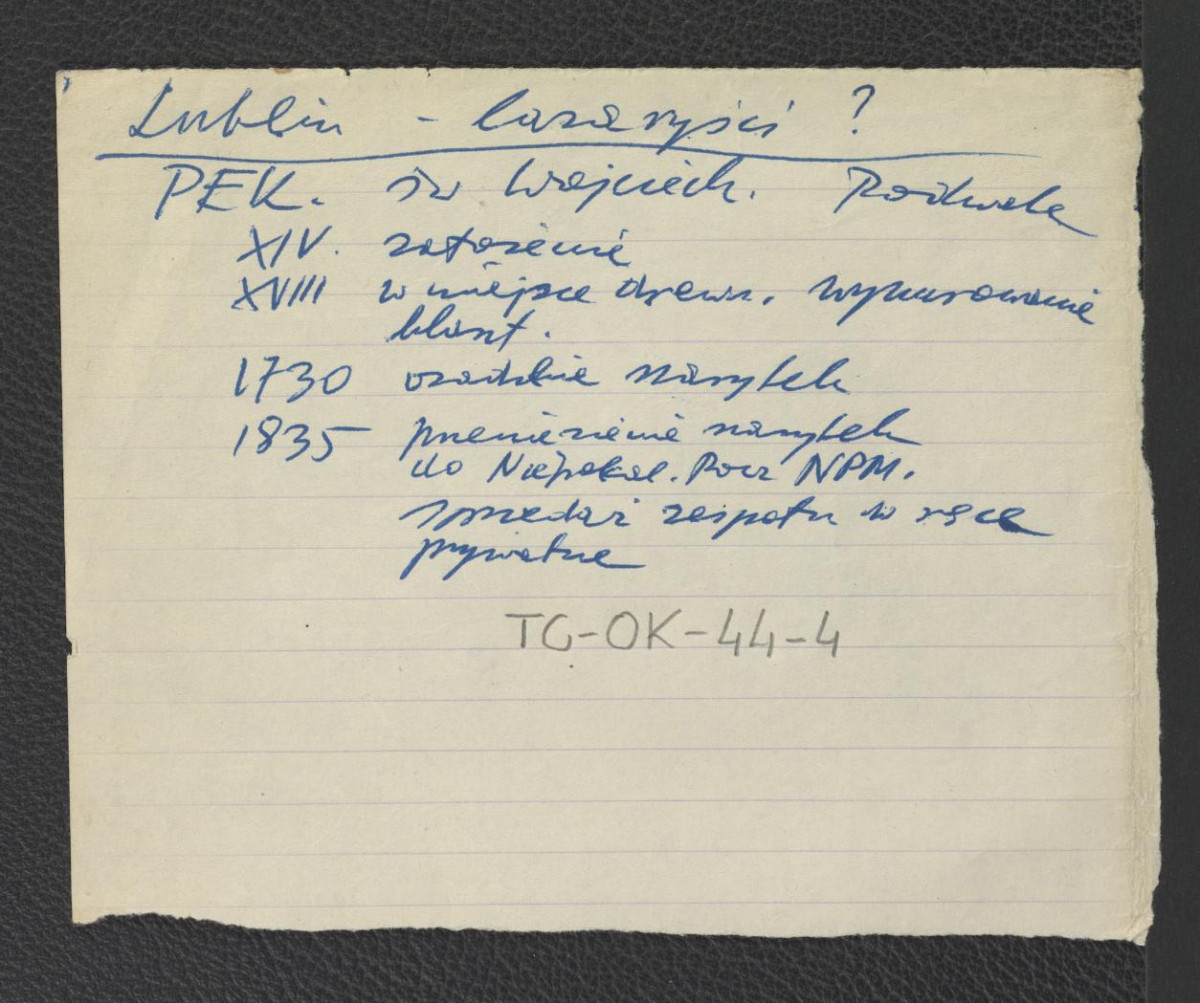 Lublin - lazaryści ?
PEK. św Wojciech. Podwale
XIV. założenie
XVIII w miejsce drewn. wymurowanie
klaszt.
1730 osadzenie szarytek
1835 przeniesienie szarytek
do Niepokal. Pocz NPM.
sprzedaż zespołu w ręce
prywatne
TG-OK-44-4